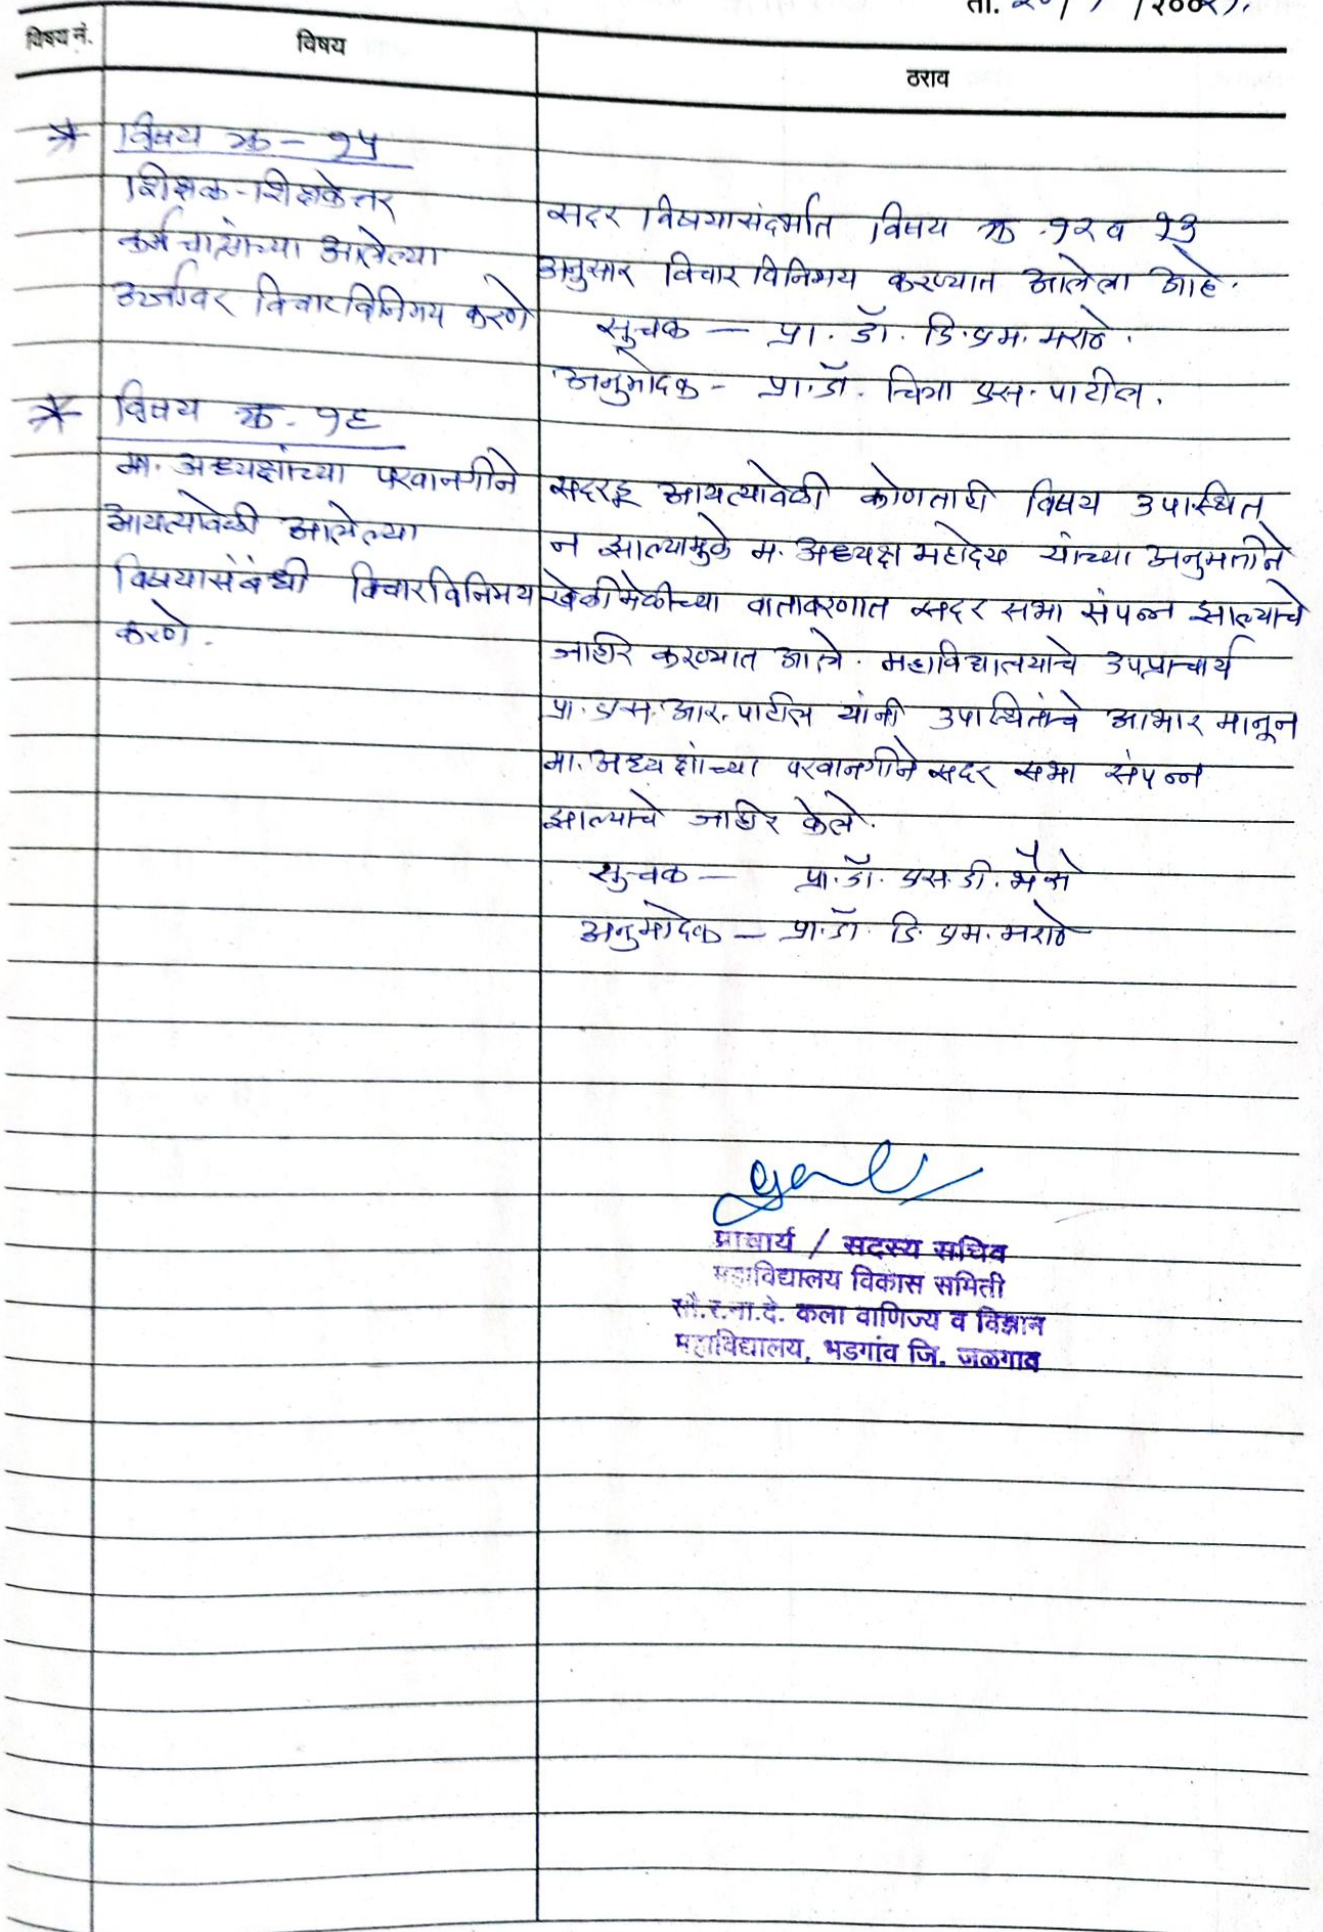 ता.
विषय नं.
विषय
ठराव
* विषय क्र - १५
शिक्षक-शिक्षकेत्तर
कर्मचाऱ्यांच्या आलेल्या
अर्जावर विचारविनिमय करणे
सदर विषयासंदर्भात विषय क्र. १२ व १३
अनुसार विचार विनिमय करण्यात आलेला आहे.
सूचक — प्रा. डॉ. डि. एम. मराठे.
अनुमोदक - प्रा. डॉ. चित्रा एस. पाटील.
* विषय क्र. १६
मा. अध्यक्षांच्या परवानगीने
आयत्यावेळी आलेल्या
विषयासंबंधी विचारविनिमय
करणे.
सदरहू आयत्यावेळी कोणताही विषय उपस्थित
न झाल्यामुळे म. अध्यक्ष महोदय यांच्या अनुमतीने
खेळीमेळीच्या वातावरणात सदर सभा संपन्न झाल्याचे
जाहीर करण्यात आले. महाविद्यालयाचे उपप्राचार्य
प्रा. एस. आर. पाटील यांनी उपस्थितांचे आभार मानून
मा. अध्यक्षांच्या परवानगीने सदर सभा संपन्न
झाल्याचे जाहीर केले.
सूचक — प्रा. डॉ. एस. डी. भैसे
अनुमोदक — प्रा. डॉ. डि. एम. मराठे
प्राचार्य / सदस्य सचिव
महाविद्यालय विकास समिती
सौ.र.ना.दे. कला वाणिज्य व विज्ञान
महाविद्यालय, भडगांव जि. जळगाव